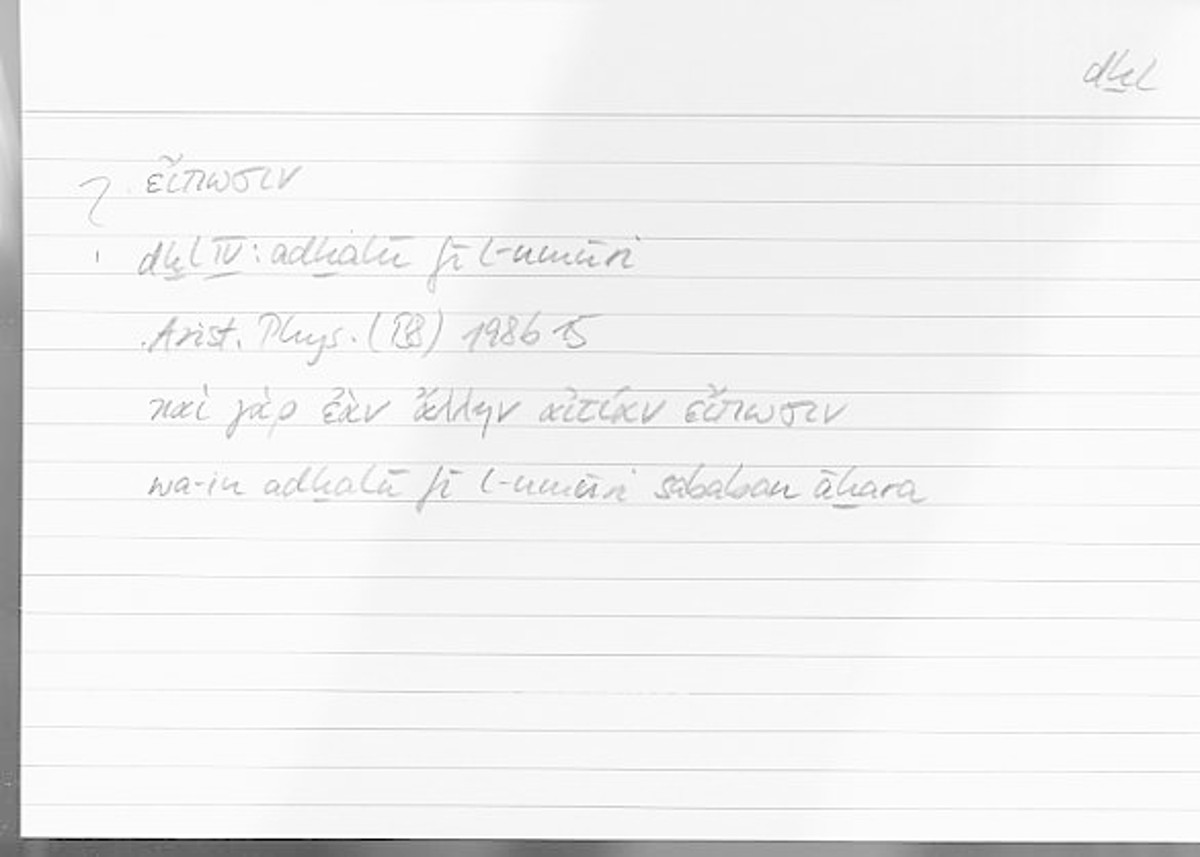 dḫl
? εἴπωσιν
dḫl IV: adḫalū fī l-umūri
Arist. Phys. (ΓΒ) 198b 15
καὶ γὰρ ἐὰν ἄλλην αἰτίαν εἴπωσιν
wa-in adḫalū fī l-umūri sababan āḫara